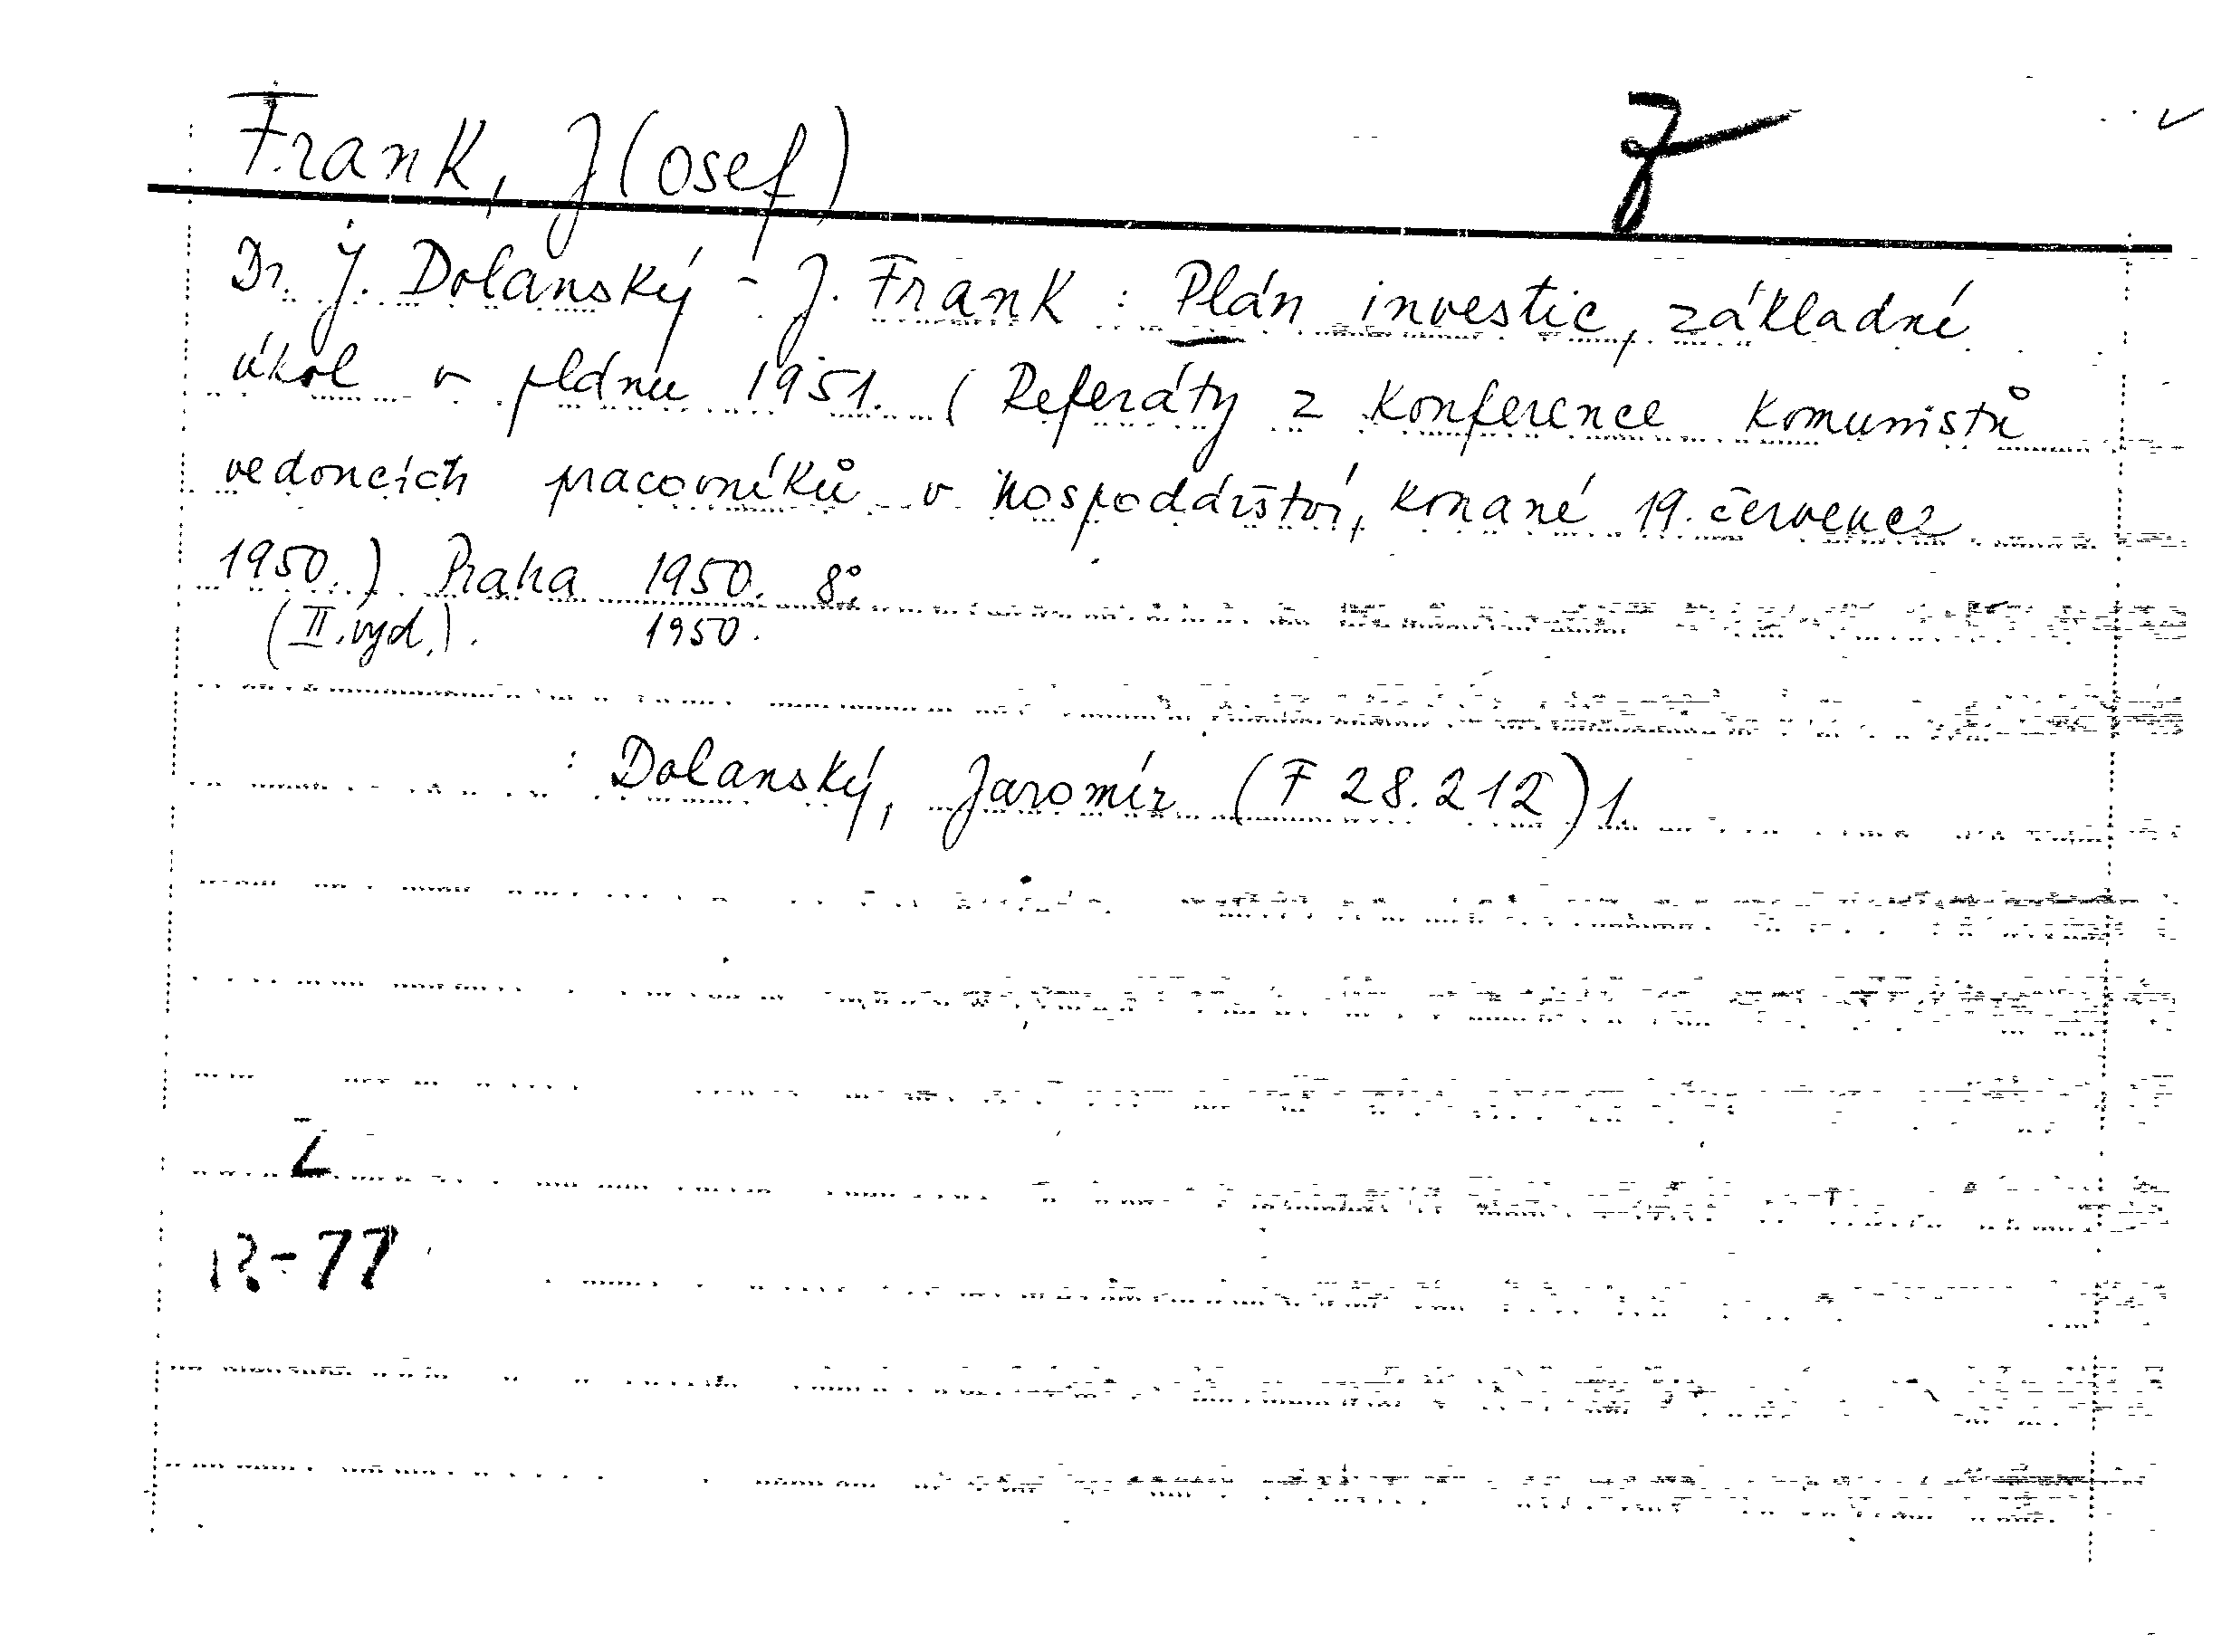 Frank, J(osef)
Dr. J. Dolanský - J. Frank : Plán investic, základní
úkol v plánu 1951. (Referáty z konference komunistů
vedoucích pracovníků v hospodářství, konané 19. července
1950.) Praha 1950. 8°.
(II. vyd.). 1950.
: Dolanský, Jaromír (F 28.212)1.
Z